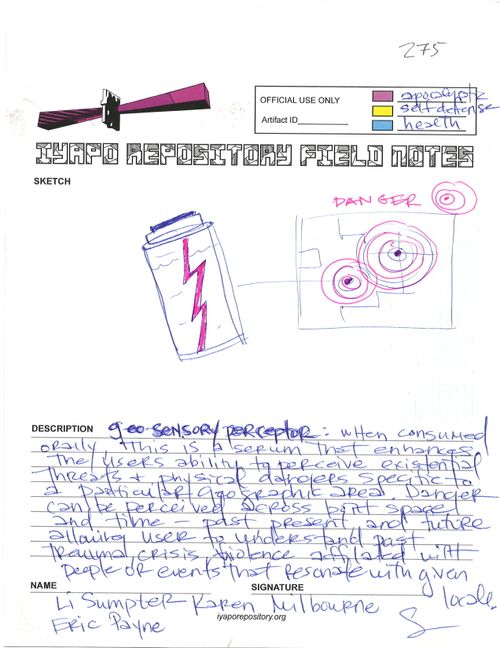 275
OFFICIAL USE ONLY
Artifact ID
apocalyptic
self defense
health
IYAPO REPOSITORY FIELD NOTES
SKETCH
DANGER
DESCRIPTION geo sensory perceptor: when consumed
orally, this is a serum that enhances
the users ability to perceive existential
threats + physical dangers specific to
a particular geographic area. Danger
can be perceived across both space
and time - past present and future
allowing user to understand past
trauma, crisis, violence affliated with
people or events that resonate with given
locale.
NAME
SIGNATURE
Li Sumpter Karen Milbourne
Eric Payne
iyaporepository.org